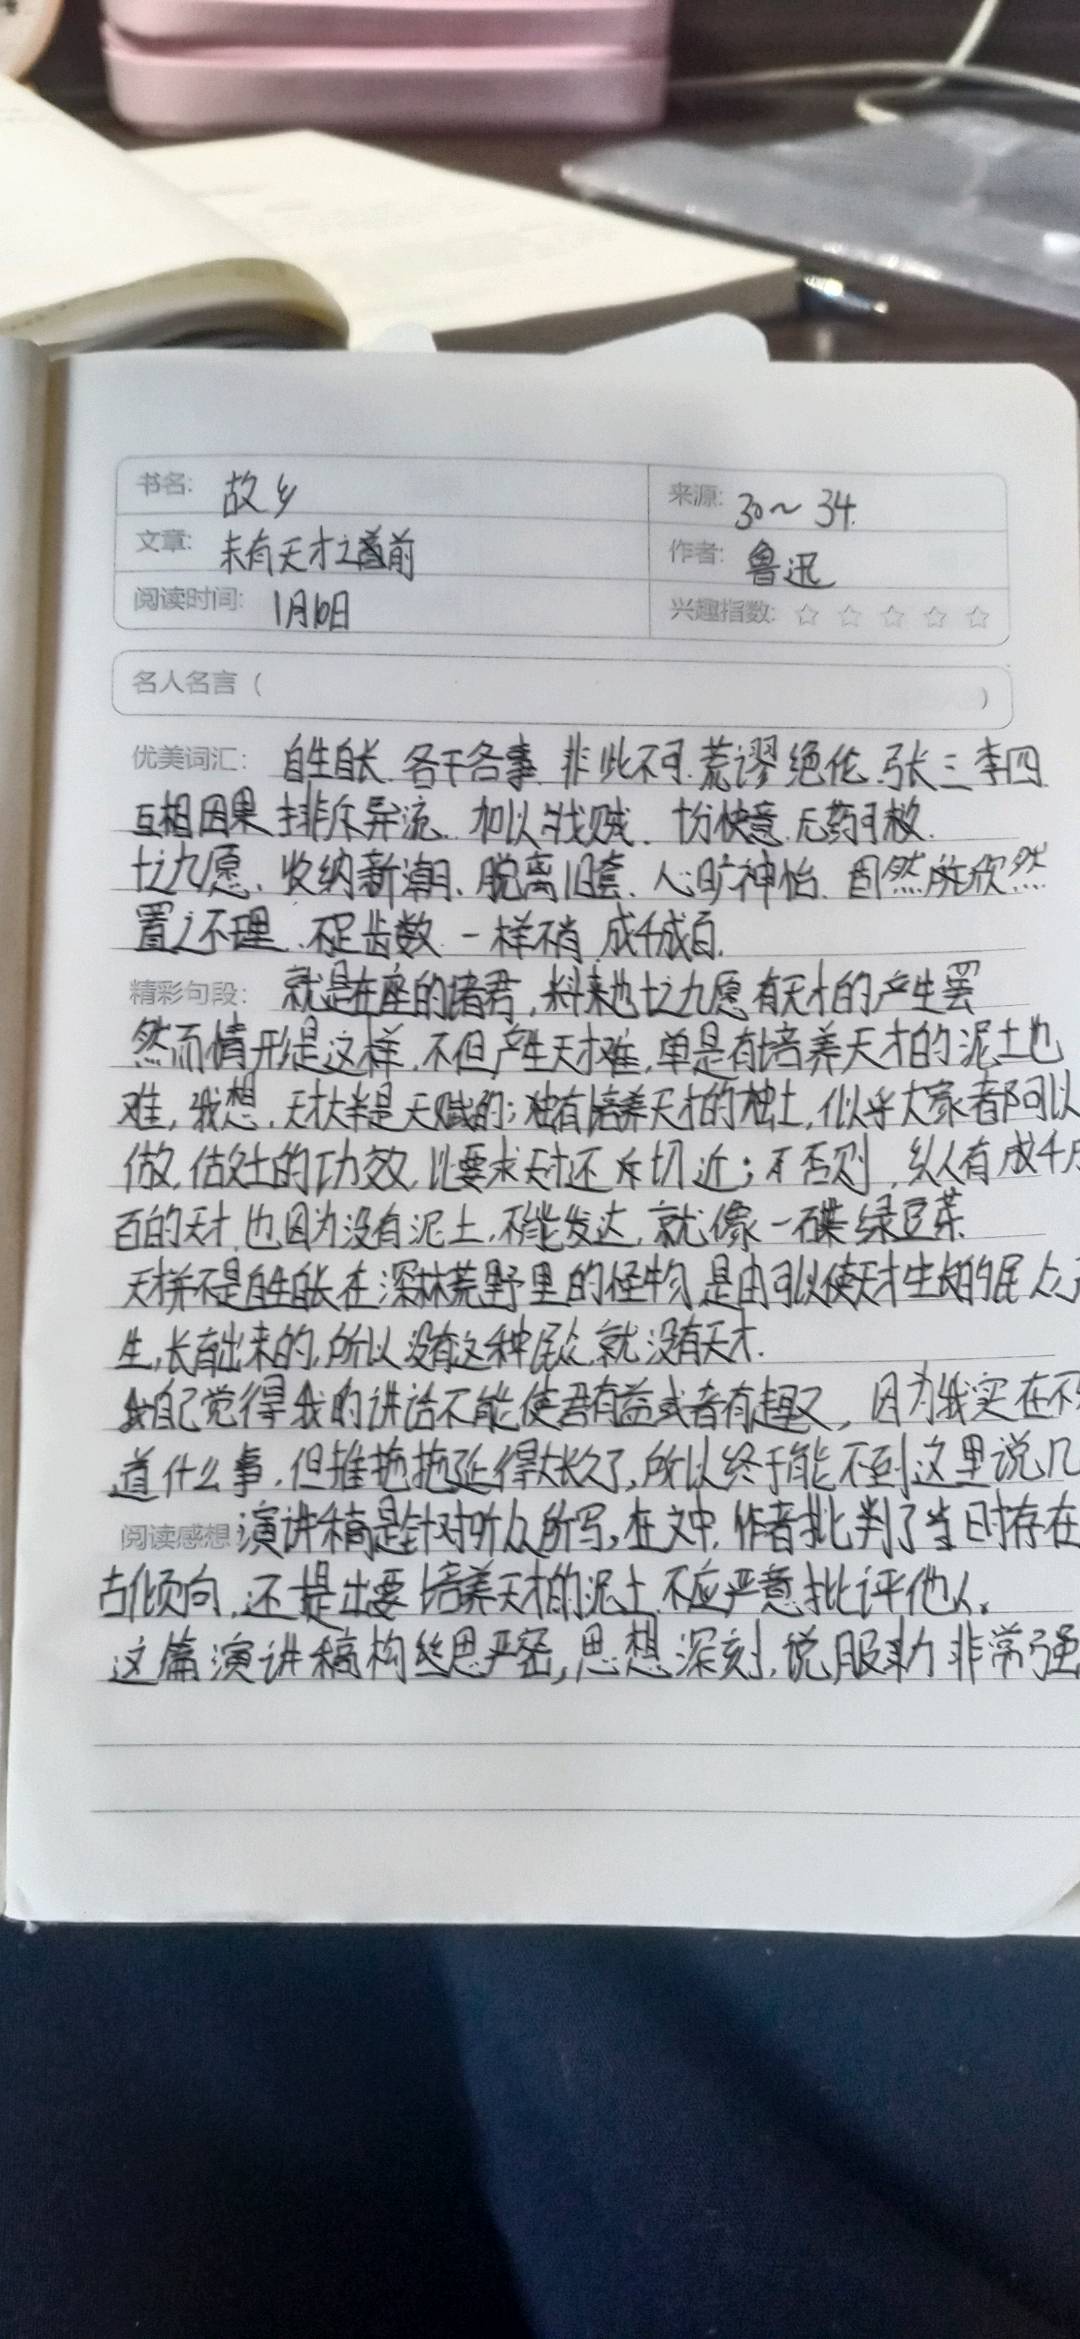 书名: 故乡 来源: 30~34.
文章: 未有天才之前 作者: 鲁迅
阅读时间: 1月10日 兴趣指数: ☆ ☆ ☆ ☆ ☆
名人名言 ( )
优美词汇: 自生自长. 各干各事. 非此不可. 荒谬绝伦. 张三李四.
互相因果 排斥异流. 加以戕贼. 十分快意. 无药可救.
十之九愿. 收纳新潮. 脱离旧套. 人心旷神怡. 固然 欣然
置之不理. 不足齿数. 一样不肖. 成千成百.
精彩句段: 就是在座的诸君, 料来也十之九愿有天才的产生罢
然而情形是这样, 不但产生天才难, 单是有培养天才的泥土也
难, 我想, 天才大半是天赋的; 独有培养天才的泥土, 似乎大家都可以
做, 做土的功效, 比要求天才还斤切近; 不否则, 纵有成千
百的天才, 也因为没有泥土, 不能发达, 就像一碟绿豆菜.
天才并不是自生自长在深林荒野里的怪物, 是由可以使天才生长的民众
生, 长育出来的, 所以没有这种民众, 就没有天才.
我自己觉得我的讲话不能使君有益或者有趣, 因为我实在不
道什么事, 但推拖拖延得太长久了, 所以终于能不到这里说几
阅读感想: 演讲稿是针对听众所写, 在文中, 作者批判了当时存在
古倾向, 还提出要培养天才的泥土, 不应严意批评他人.
这篇演讲稿构丝思严密, 思想深刻, 说服力非常强